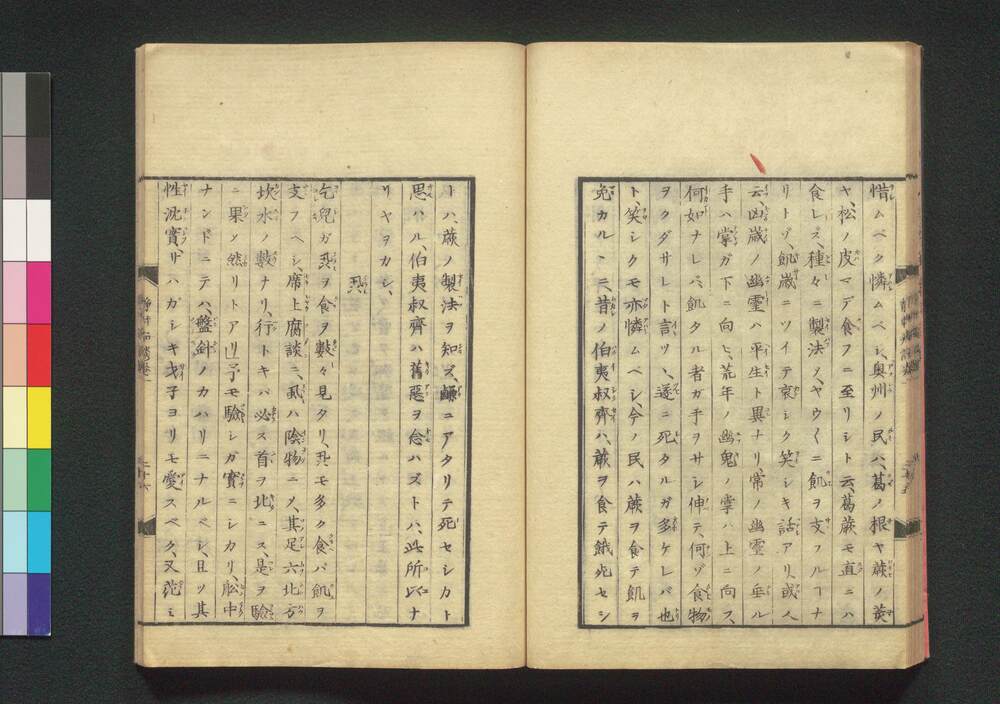 惜ムベク憐ムベシ、奥州ノ民ハ、葛ノ根ヤ蕨ノ莖
ヤ、松ノ皮マデ食フニ至リシト云、葛蕨モ直ニハ
食レズ、種々ニ製法ノ、ヤウ〱ニ飢ヲ支フルヿナ
リトゾ、飢歳ニツイテ哀シク笑シキ話アリ、或人
云、凶歳ノ幽靈ハ平生ト異ナリ、常ノ幽靈ノ垂ル
手ハ掌ガ下ニ向ヒ、荒年ノ幽鬼ノ掌ハ上ニ向フ、
何如ナレバ、飢タル者ガ手ヲサシ伸テ、何ゾ食物
ヲクダサレト言ツヽ、遂ニ死タルガ多ケレバ也
ト、笑シクモ亦憐ムベシ、今ノ民ハ蕨ヲ食テ飢ヲ
免カルヽニ、昔ノ伯夷叔齊ハ、蕨ヲ食テ餓死セシ
ト、ハ、蕨ノ製法ヲ知ズ、鹼ニアタリテ死セシカト
思ハル、伯夷叔齊ハ舊惡ヲ念ハズトハ、此所以ナ
リヤヲカシ、
虱
乞兒ガ虱ヲ食ヲ數々見タリ、虱モ多ク食バ飢ヲ
支フヘシ、席上腐談ニ、虱ハ陰物ニメ、其足六北方
坎水ノ數ナリ、行トキバ必ス首ヲ北ニス、是ヲ驗
ニ果メ然リトアリ、予モ驗シガ實ニシカリ、舩中
ナンドニテハ、盤針ノカハリニナルベシ、且ツ其
性沈實ナリ、ハガシキ子ヨリモ愛スベク、又ミ